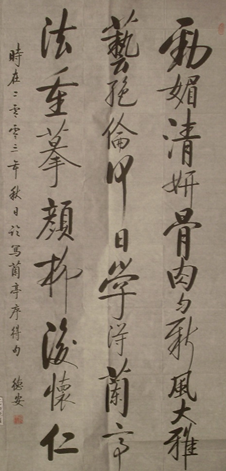 勁媚清妍骨肉勻新風大雅
藝絕倫何日學得蘭亭
法重摹顏柳後懷仁
時在二零零三年秋日於寫蘭亭序得句 德安